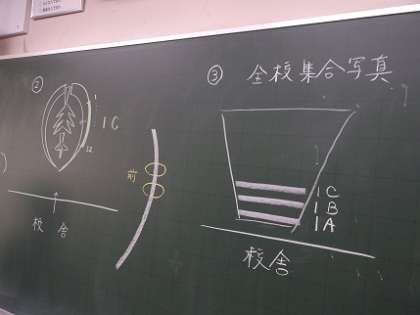 ②
1
1C
12
校舎
前
③ 全校集合写真
1C
1B
1A
校舎